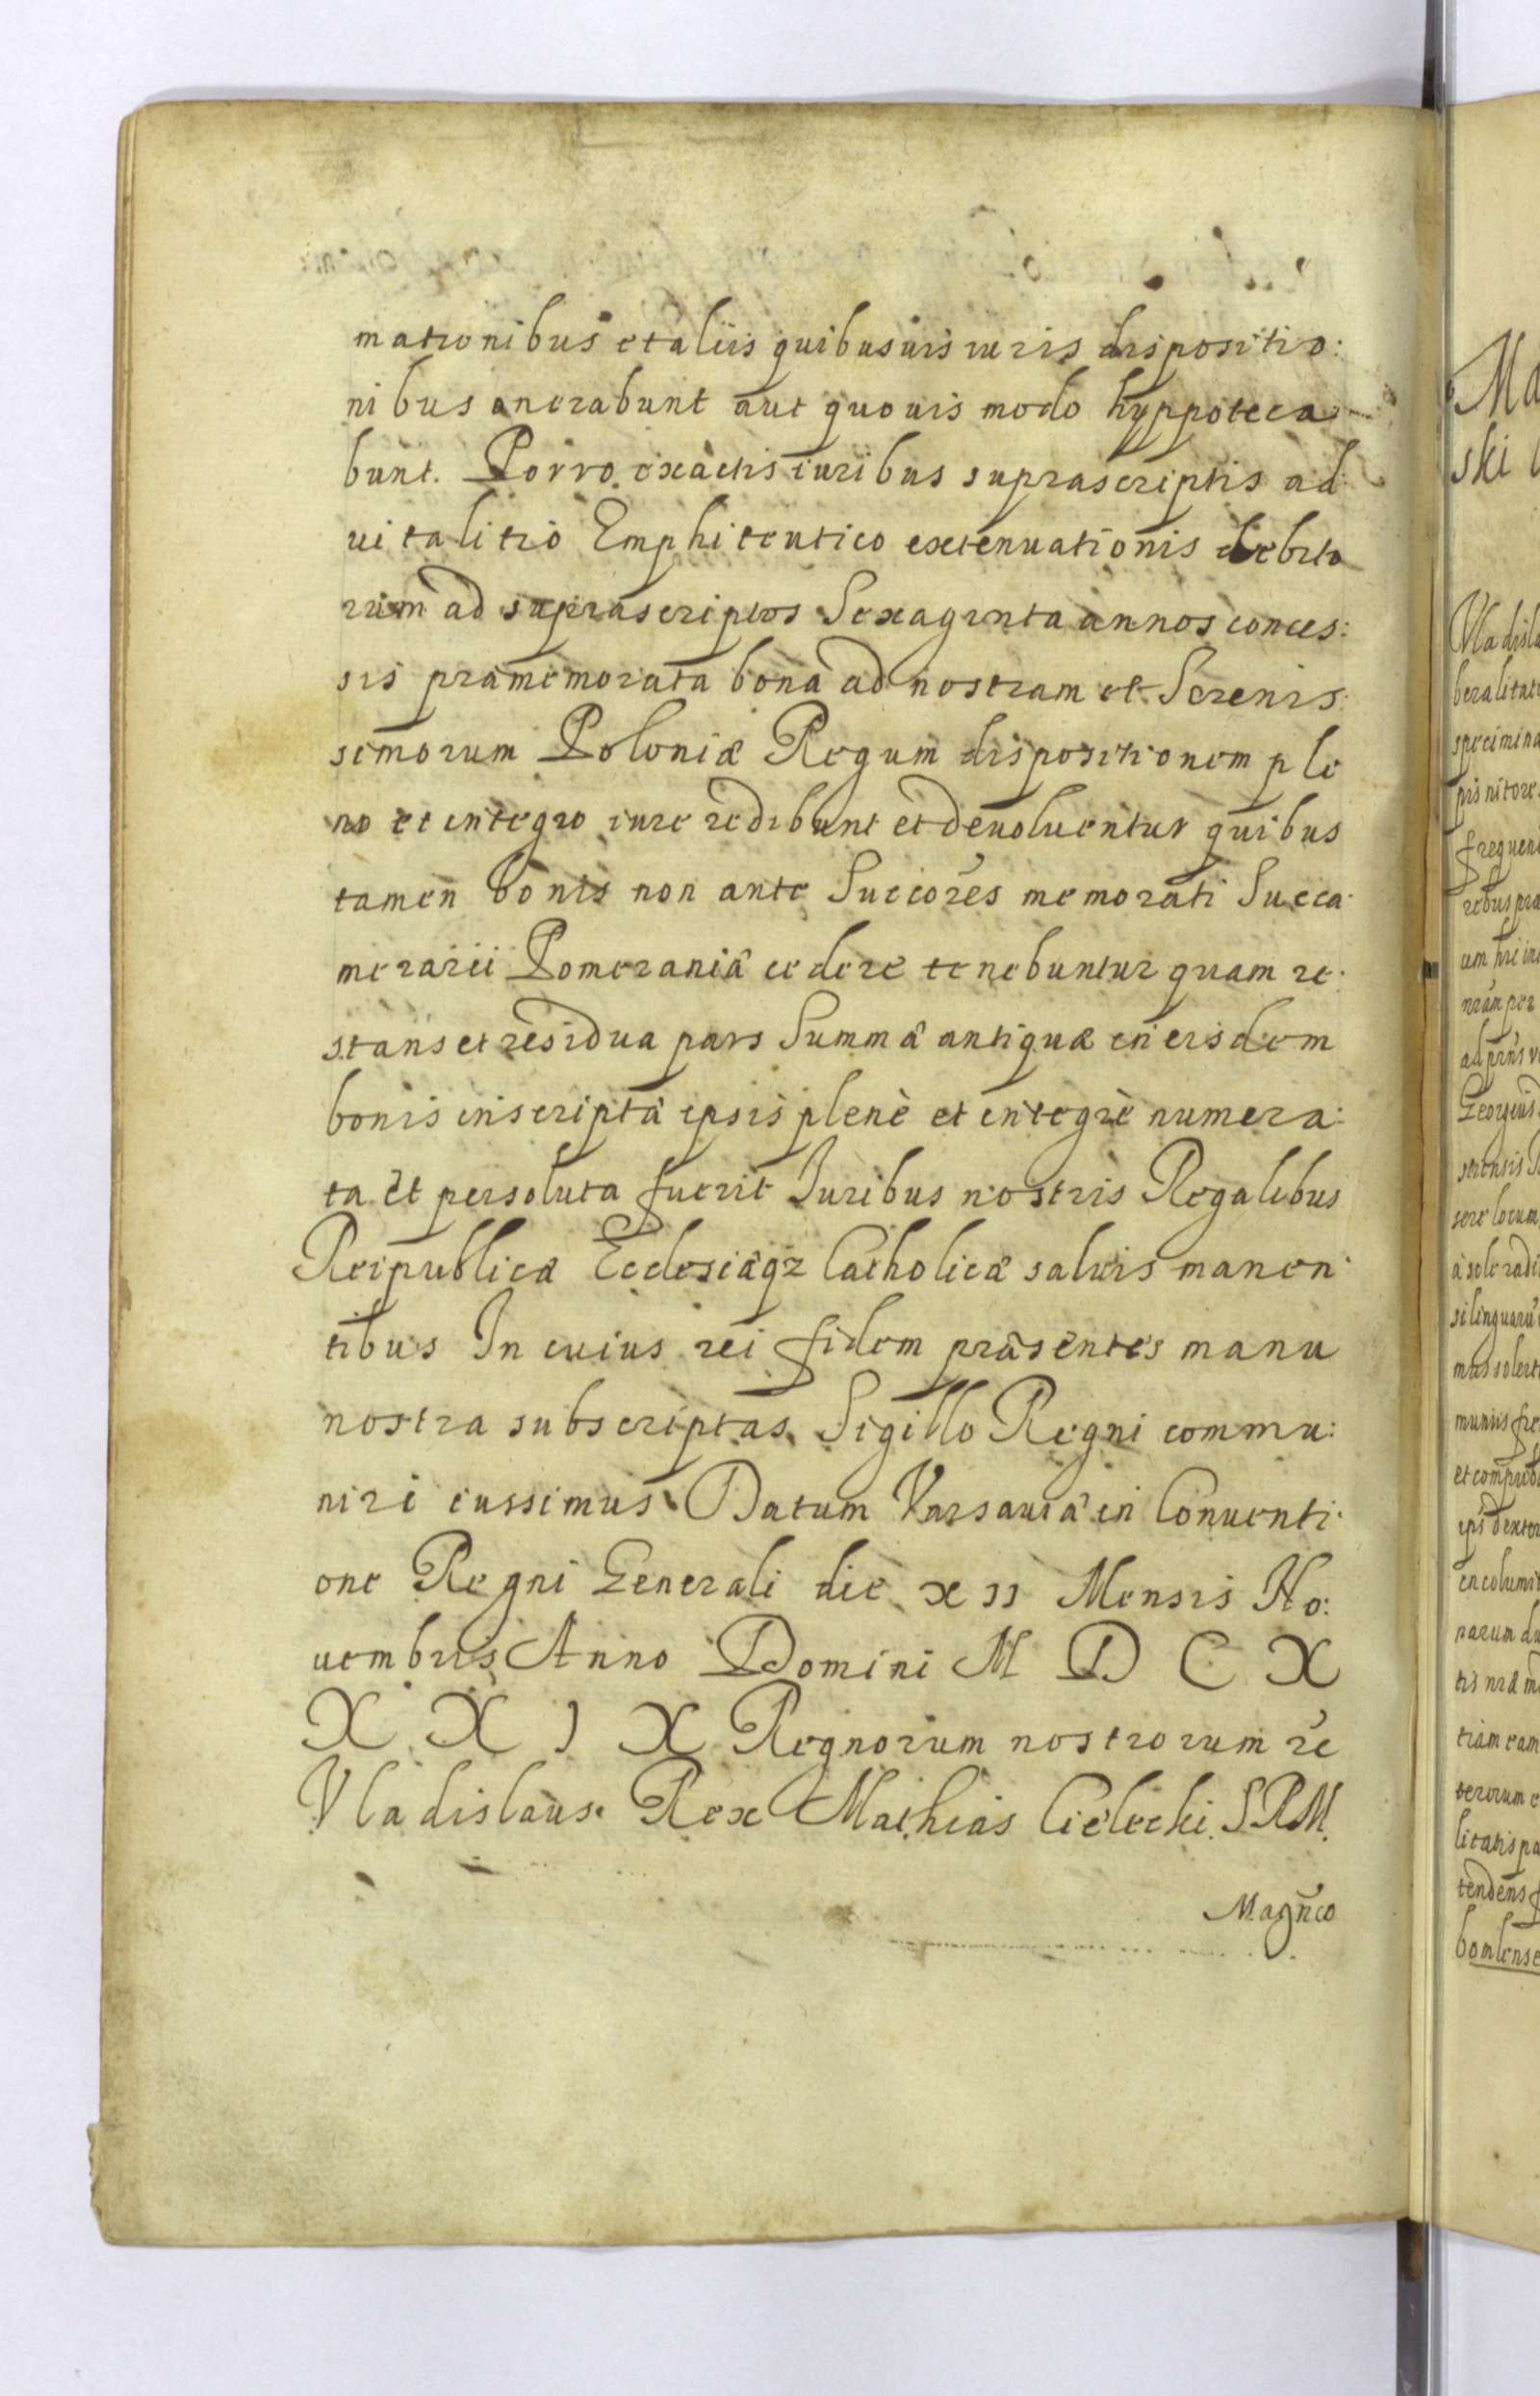 mationibus et aliis quibusuis iuris dispositio:
nibus onerabunt aut quouis modo hyppoteca
bunt. Porro exactis iuribus suprascriptis ad
uitalitio Emphiteutico extenuationis debito
rum ad suprascriptos Sexaginta annos conces:
sis præmemorata bona ad nostram et Serenis:
simorum Poloniæ Regum dispositionem ple
no et integro iure redibunt et deuoluentur quibus
tamen bonis non ante Succores memorati Succa:
merarii Pomeraniâ cedere tenebuntur quam re:
stans et residua pars Summâ antiquæ in eisdem
bonis inscriptâ ipsis plenè et integrè numera:
ta et persoluta fuerit Juribus nostris Regalibus
Reipublicæ Ecclesiâqz Catholicæ saluis manen
tibus In cuius rei fidem præsentes manu
nostra subscriptas Sigillo Regni commu:
niri iussimus Datum Varsauiâ in Conuenti:
one Regni Generali die XII Mensis No:
uembris Anno Domini M D C X
X X I X Regnorum nostrorum rē
Vladislaus Rex Mathias Cielecki SRM.
Magñco
Ma
ski
Vladisla
beralitat
specimina
pis nitore
frequen
rebus præ
um hic in
nram per
ad prns v
Georgius
sore locum
à sole radi
si linguarū
mus solert
muniis fre
et comprob
ips dexter
incolumit
narum du
tis nræ m
tiam eam
terorum e
litatis pa
tendens
bomlense